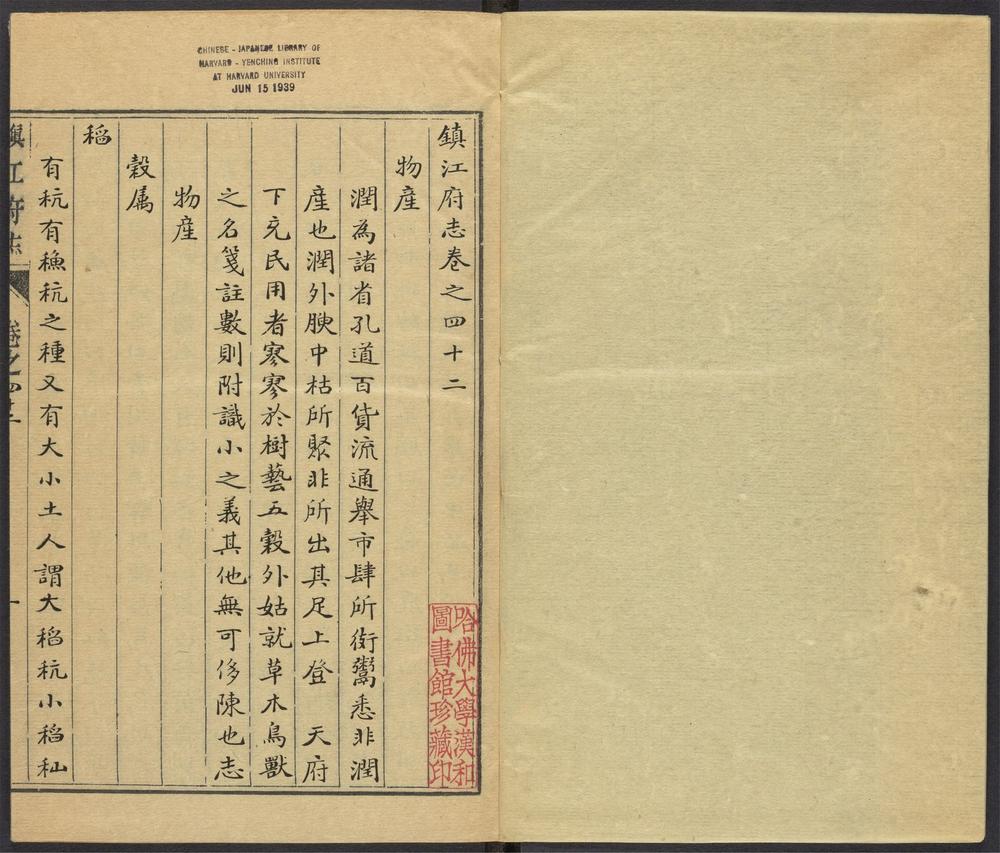 CHINESE - JAPANESE LIBRARY OF
HARVARD - YENCHING INSTITUTE
AT HARVARD UNIVERSITY
JUN 15 1939
鎮江府志卷之四十二
物産
潤為諸省孔道百貨流通舉市肆所衒鬻悉非潤
産也潤外腴中枯所聚非所出其足上登 天府
下充民用者寥寥於樹藝五穀外姑就草木鳥獸
之名箋註數則附識小之義其他無可侈陳也志
物産
穀属
稻
有秔有穤秔之種又有大小土人謂大稻秔小稻秈
鎮江府志 卷之四十二 一
哈佛大學漢和
圖書館珍藏印